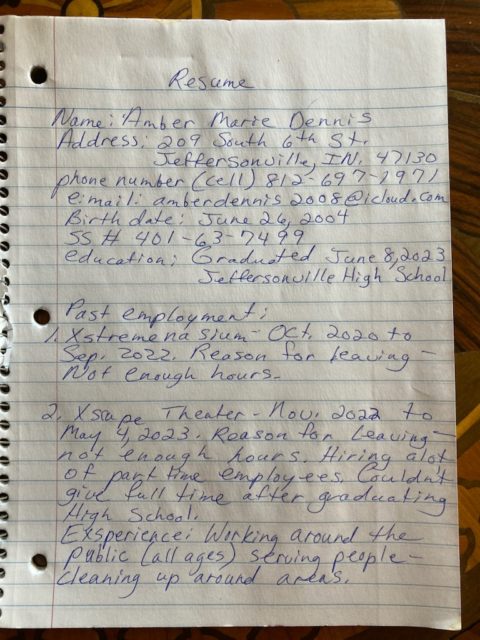 Resume
Name: Amber Marie Dennis
Address: 209 South 6th St.
Jeffersonville, IN. 47130
phone number (cell) 812-697-1971
e-mail: amberdennis2008@icloud.com
Birth date: June 26, 2004
SS# 401-63-7499
education: Graduated June 8, 2023
Jeffersonville High School
Past employment:
1. Xstremenasium - Oct. 2020 to
Sep. 2022. Reason for leaving -
Not enough hours.
2. Xscape Theater - Nov. 2022 to
May 4, 2023. Reason for Leaving -
not enough hours. Hiring alot
of part time employees. Couldn't
give full time after graduating
High School.
Exsperience: Working around the
public (all ages) serving people -
cleaning up around areas.